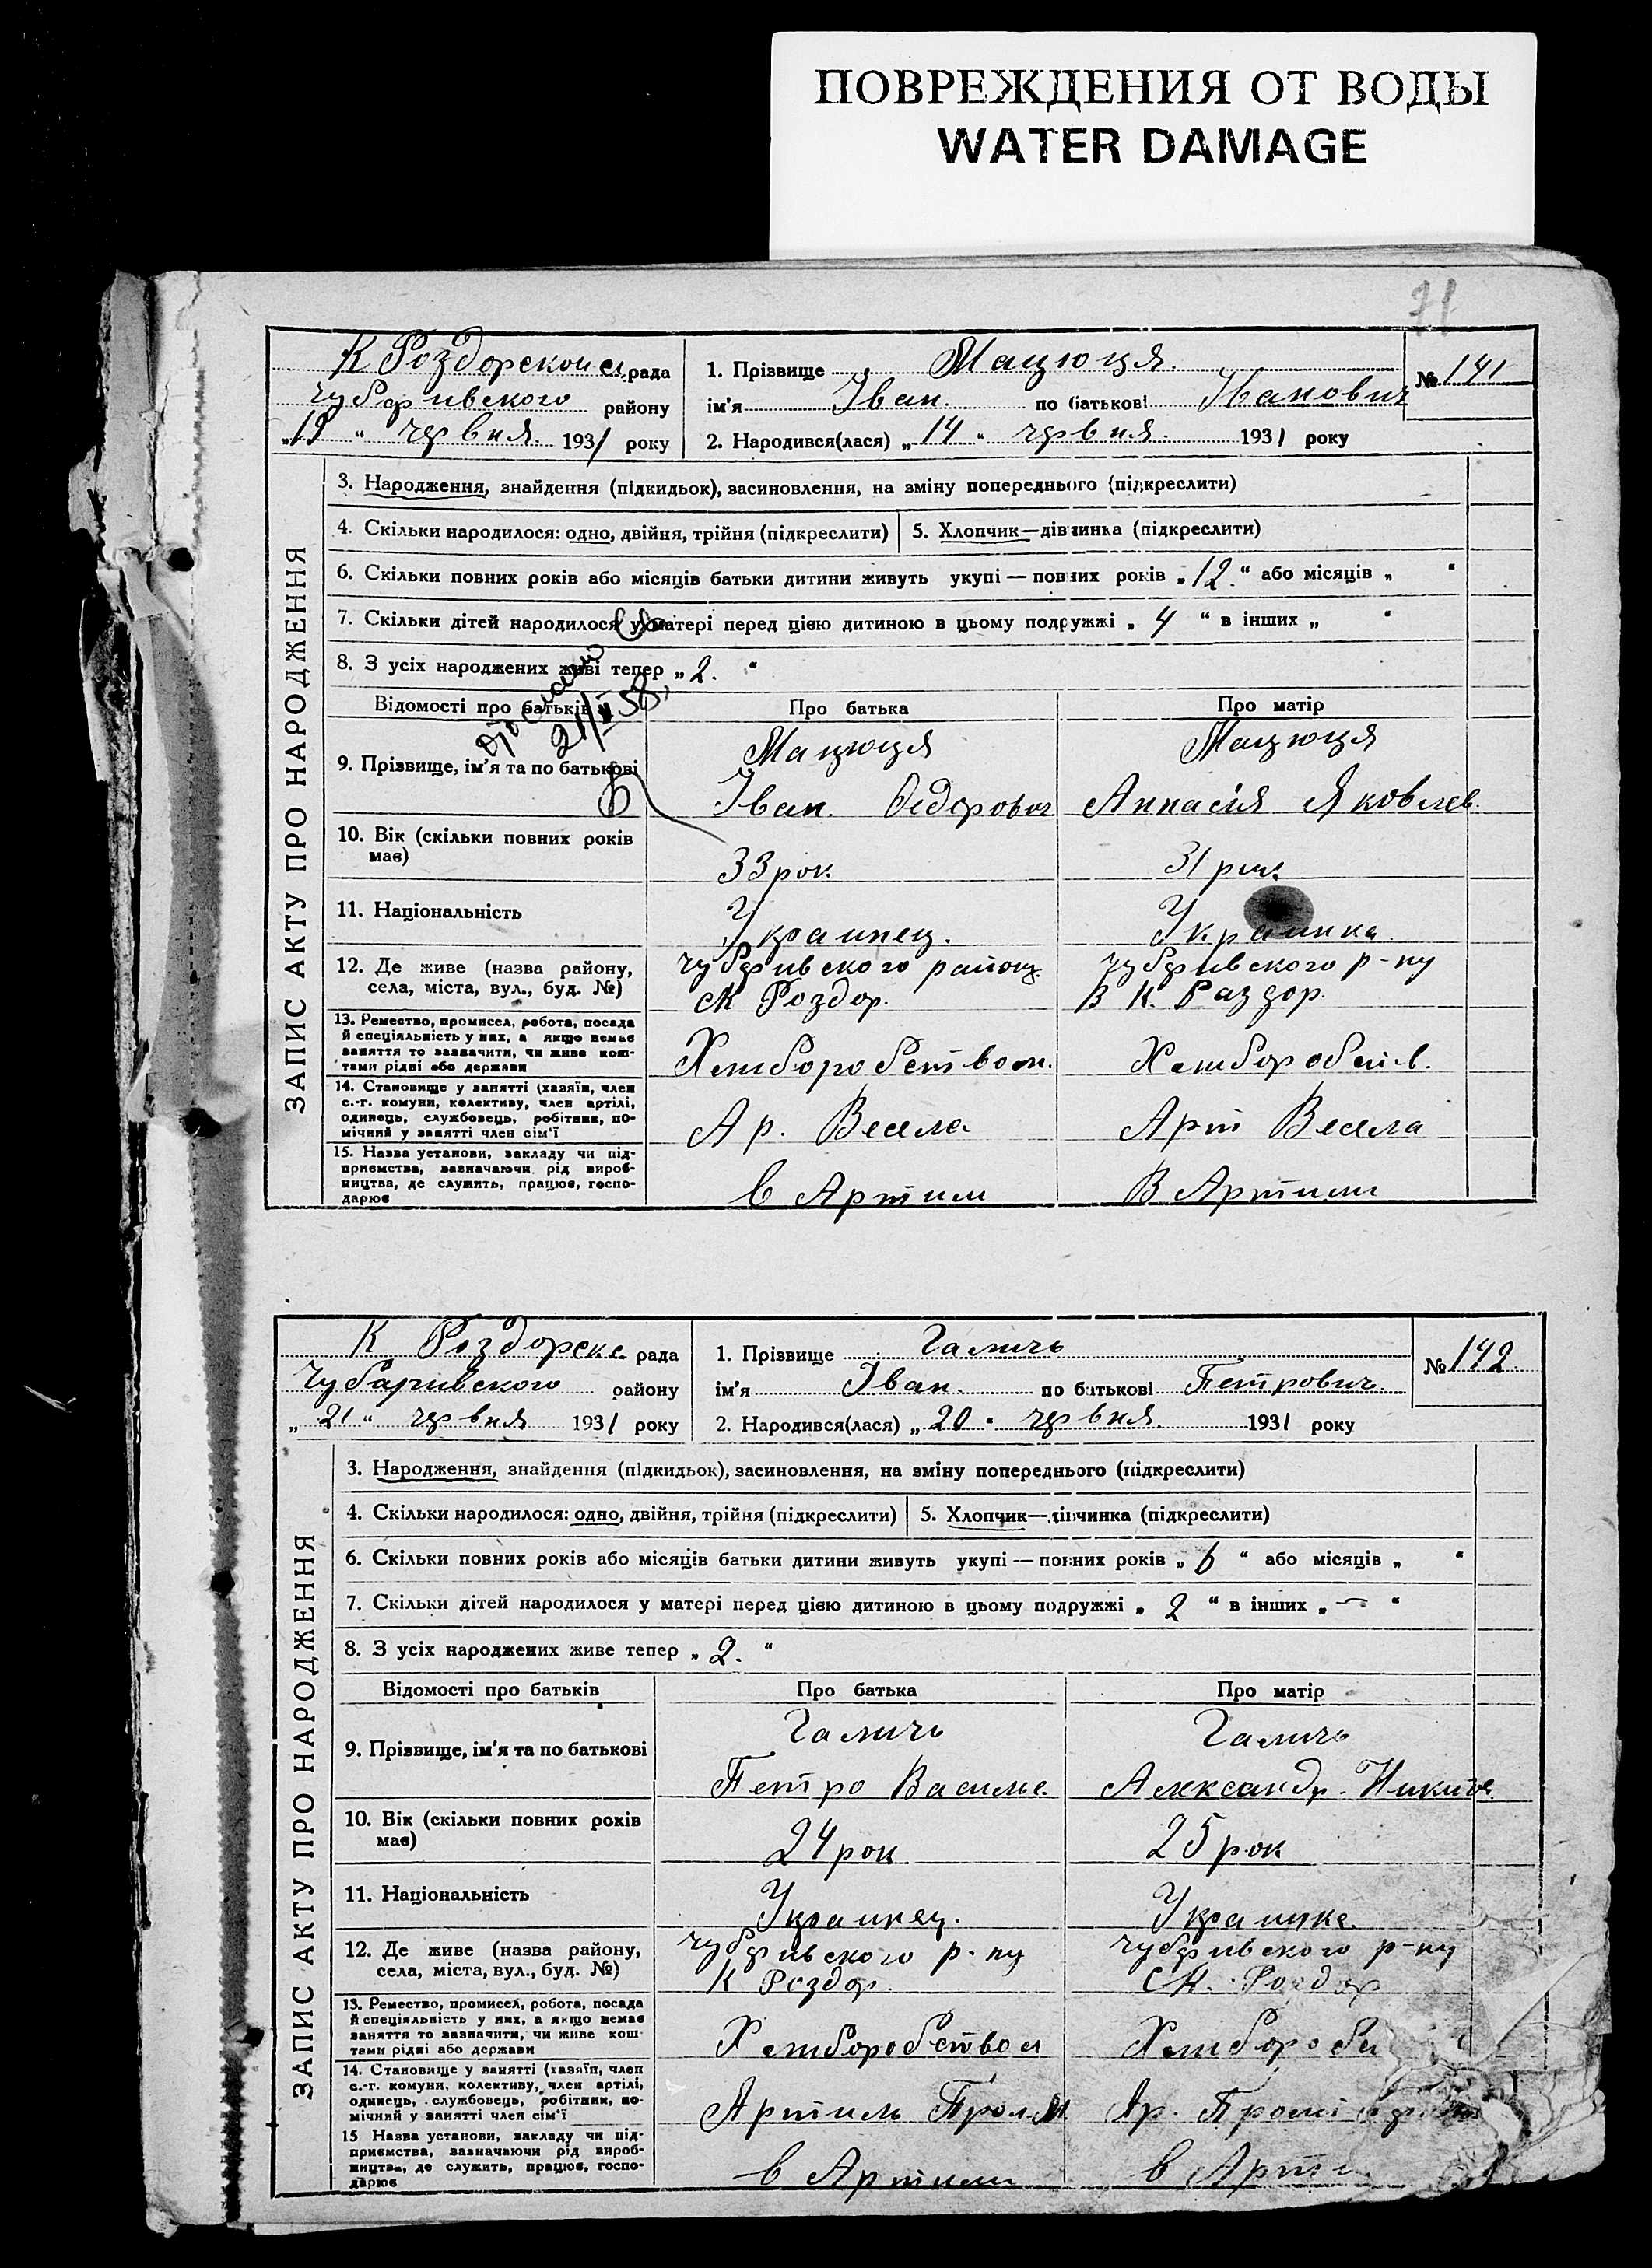 ПОВРЕЖДЕНИЯ ОТ ВОДЫ
WATER DAMAGE
71
ЗАПИС АКТУ ПРО НАРОДЖЕННЯ
К Роздорскои с. рада
Чубаривского району
„19“ червня 1931 року
1. Прізвище Мацюця
№ 141
ім'я Іван по батькові Іванович
2. Народився(лася) „14“ червня 1931 року
3. Народження, знайдення (підкидьок), засиновлення, на зміну попереднього (підкреслити)
4. Скільки народилося: одно, двійня, трійня (підкреслити) 5. Хлопчик—дівчинка (підкреслити)
6. Скільки повних років або місяців батьки дитини живуть укупі — повних років „12.“ або місяців „ “
7. Скільки дітей народилося у матері перед цією дитиною в цьому подружжі „4“ в інших „ “
8. З усіх народжених живі тепер „2.“
21/ 58
Відомості про батьків Про батька Про матір
9. Прізвище, ім'я та по батькові
Мацюця Мацюця
Іван Федорович Аннасія Яковлев.
10. Вік (скільки повних років має)
33 рок. 31 рик
11. Національність
Украинец. Украинка
12. Де живе (назва району, села, міста, вул., буд. №)
Чубаривского району Чубаривского р-ну
с К Роздор. В К. Раздор.
13. Ремество, промисел, робота, посада
й спеціяльність у них, а якщо немає
заняття то зазначити, чи живе кош-
тами рідні або держави
Хлиборобством. Хлиборобств.
14. Становище у занятті (хазяїн, член
с.-г. комуни, колективу, член артілі,
одинець, службовець, робітник, по-
мічний у занятті член сім'ї
Ар. Весела Арт Весела
15. Назва установи, закладу чи під-
приємства, зазначаючи рід вироб-
ництва, де служить, працює, госпо-
дарює
в Артили В Артили
ЗАПИС АКТУ ПРО НАРОДЖЕННЯ
К Роздорске рада
Чубаривского району
„21“ червня 1931 року
1. Прізвище Галичь
№ 142
ім'я Іван. по батькові Петрович.
2. Народився(лася) „20“ червня 1931 року
3. Народження, знайдення (підкидьок), засиновлення, на зміну попереднього (підкреслити)
4. Скільки народилося: одно, двійня, трійня (підкреслити) 5. Хлопчик—дівчинка (підкреслити)
6. Скільки повних років або місяців батьки дитини живуть укупі — повних років „6“ або місяців „ “
7. Скільки дітей народилося у матері перед цією дитиною в цьому подружжі „2“ в інших „—“
8. З усіх народжених живе тепер „2.“
Відомості про батьків Про батька Про матір
9. Прізвище, ім'я та по батькові
Галичь Галичь
Петро Василье. Александр. Никит
10. Вік (скільки повних років має)
24 рок 25 рок
11. Національність
Украинец. Украинка
12. Де живе (назва району, села, міста, вул., буд. №)
Чубаривского р-ну Чубаривского р-ну
К Роздор. с К. Роздор
13. Ремество, промисел, робота, посада
й спеціяльність у них, а якщо немає
заняття то зазначити, чи живе кош-
тами рідні або держави
Хлиборобством Хлибороб
14. Становище у занятті (хазяїн, член
с.-г. комуни, колективу, член артілі,
одинець, службовець, робітник, по-
мічний у занятті член сім'ї
Артиль Ар.
15 Назва установи, закладу чи під-
приємства, зазначаючи рід вироб-
ництва, де служить, працює, госпо-
дарює
в Артили в Арти